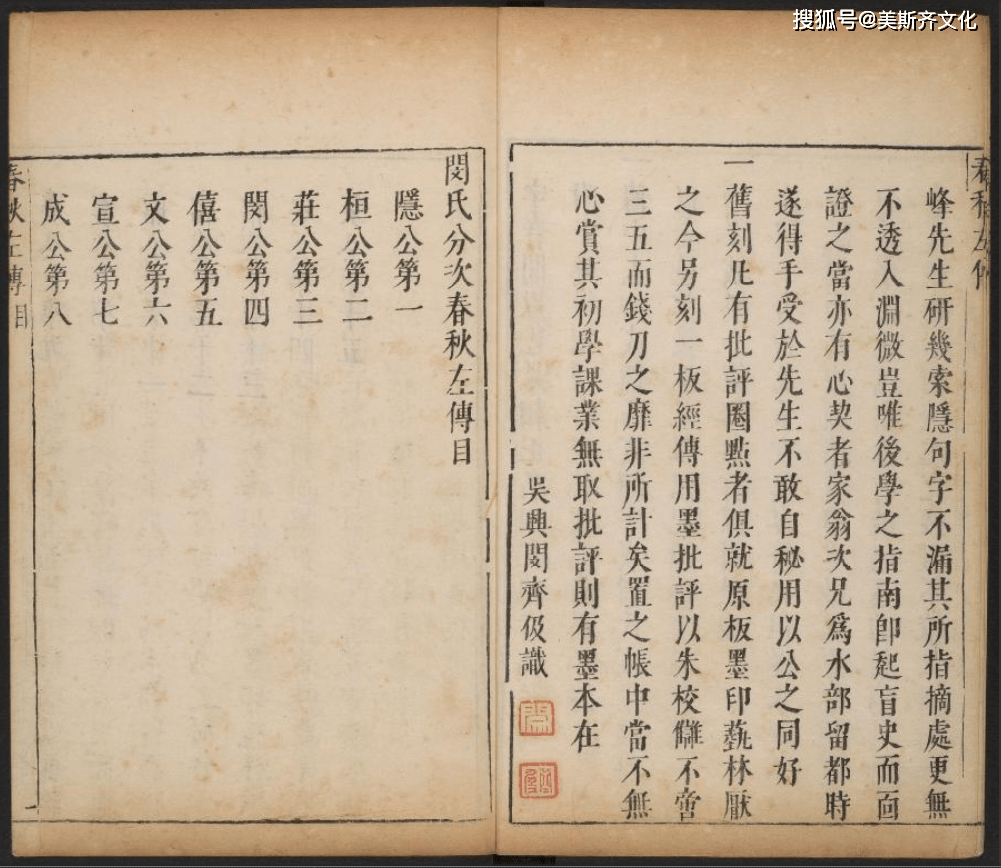 搜狐号@美斯齐文化
峰先生研幾索隱句字不漏其所指摘處更無
不透入淵微豈唯後學之指南卽起盲史而面
證之當亦有心契者家翁次兄爲水部留都時
遂得手受於先生不敢自秘用以公之同好
一舊刻凡有批評圈點者俱就原板墨印藝林厭
之今另刻一板經傳用墨批評以朱校讎不啻
三五而錢刀之靡非所計矣置之帳中當不無
心賞其初學課業無取批評則有墨本在
吳興閔齊伋識
閔氏分次春秋左傳目
隱公第一
桓公第二
莊公第三
閔公第四
僖公第五
文公第六
宣公第七
成公第八
春秋左傳目